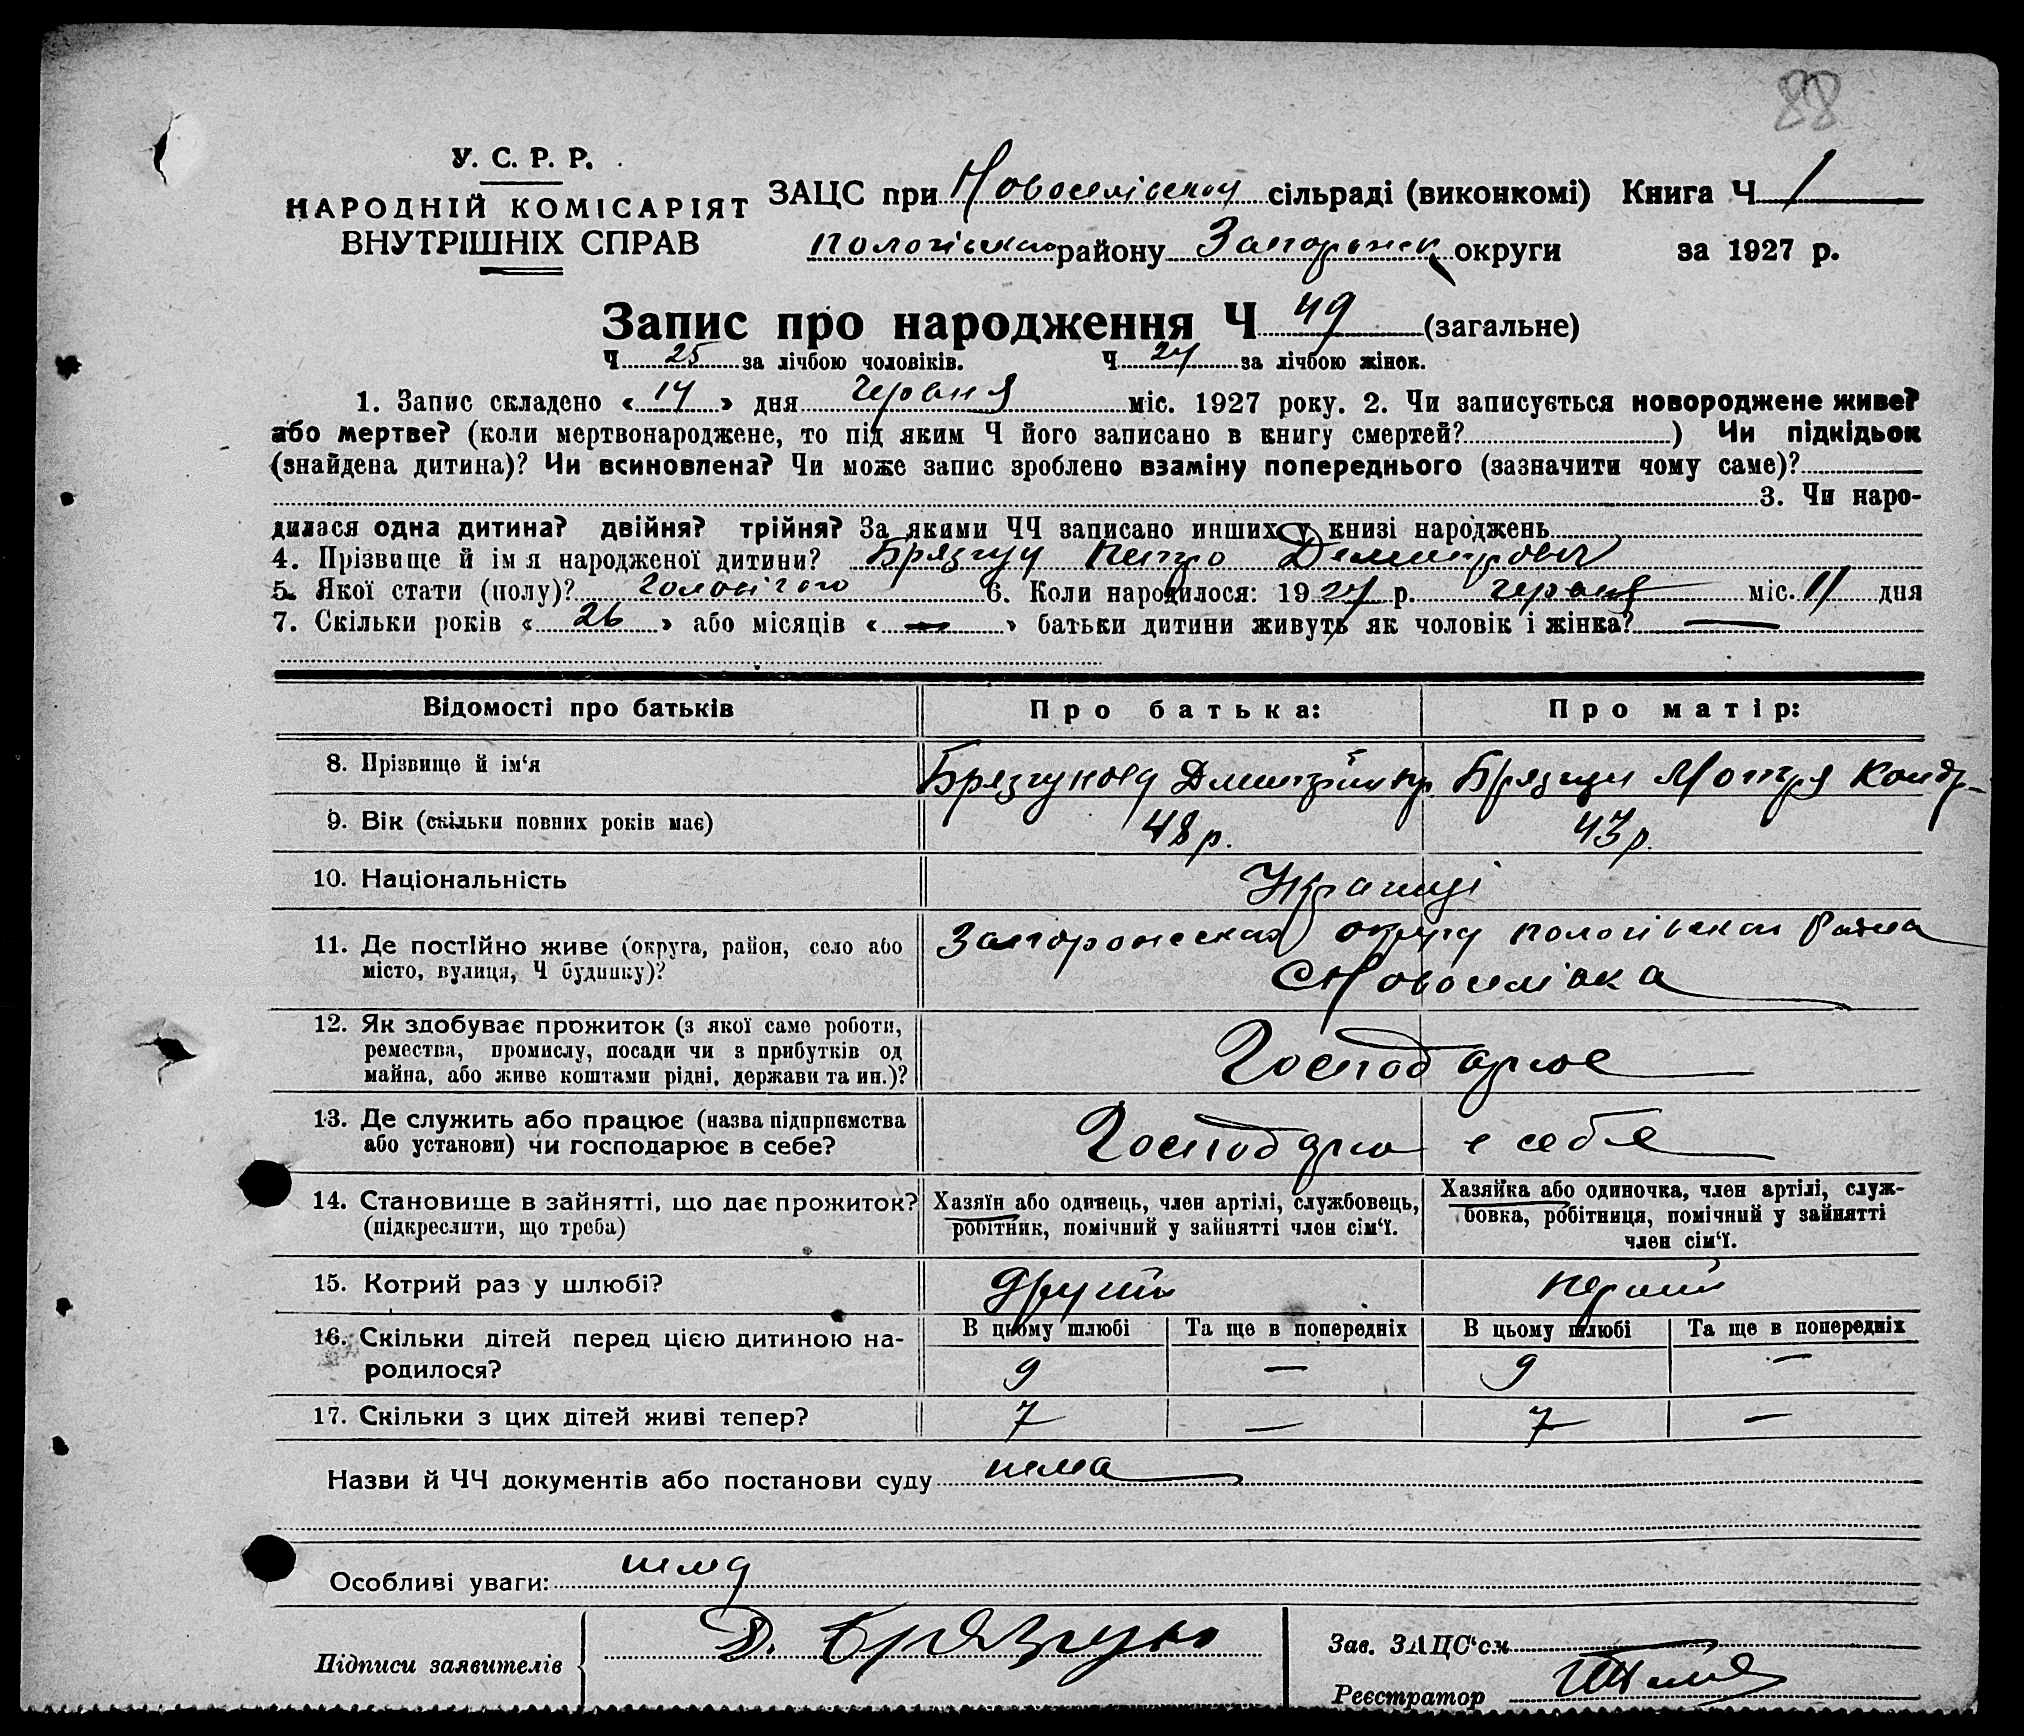 88
У. С. Р. Р.
НАРОДНІЙ КОМІСАРІЯТ
ВНУТРІШНІХ СПРАВ
ЗАЦС при Новоселівской сільраді (виконкомі) Книга Ч 1
району Запорожск округи за 1927 р.
Запис про народження Ч 49 (загальне)
Ч 25 за лічбою чоловіків. Ч 24 за лічбою жінок.
1. Запис складено « 14 » дня Червня міс. 1927 року. 2. Чи записується новороджене живе?
або мертве? (коли мертвонароджене, то під яким Ч його записано в книгу смертей? ) Чи підкідьок
(знайдена дитина)? Чи всиновлена? Чи може запис зроблено взаміну попереднього (зазначити чому саме)?
3. Чи наро-
дилася одна дитина? двійня? трійня? За якими ЧЧ записано инших у книзі народжень
4. Прізвище й ім я народженої дитини? Брязгун Петро
5. Якої стати (полу)? 6. Коли народилося: 1927 р. червня міс. 11 дня
7. Скільки років « 26 » або місяців « — » батьки дитини живуть як чоловік і жінка? —
Відомості про батьків Про батька: Про матір:
8. Прізвище й ім‘я Брязгун Мотря Кондр-
9. Вік (скільки повних років має) 48 р. 43 р.
10. Національність Українці
11. Де постІйно живе (округа, район, село або
місто, вулиця, Ч будинку)?
с Новоселівка
12. Як здобуває прожиток (з якої саме роботи,
ремества, промислу, посади чи з прибутків од
майна, або живе коштами рідні, держави та ин.)?
Господарює
13. Де служить або працює (назва підприємства
або установи) чи господарює в себе?
Господарює в себе
14. Становище в зайнятті, що дає прожиток?
(підкреслити, що треба)
Хазяїн або одинець, член артілі, службовець,
робітник, помічний у зайнятті член сім‘ї.
Хазяйка або одиночка, член артілі, служ-
бовка, робітниця, помічний у зайнятті
член сім‘ї.
15. Котрий раз у шлюбі? другий перший
16. Скільки дітей перед цією дитиною на-
родилося?
В цьому шлюбі Та ще в попередніх В цьому шлюбі Та ще в попередніх
9 — 9 —
17. Скільки з цих дітей живі тепер? 7 — 7 —
Назви й ЧЧ документів або постанови суду нема
Особливі уваги: нема
Підписи заявителів Д. Брязгун
Зав. ЗАЦС‘ом
Реєстратор